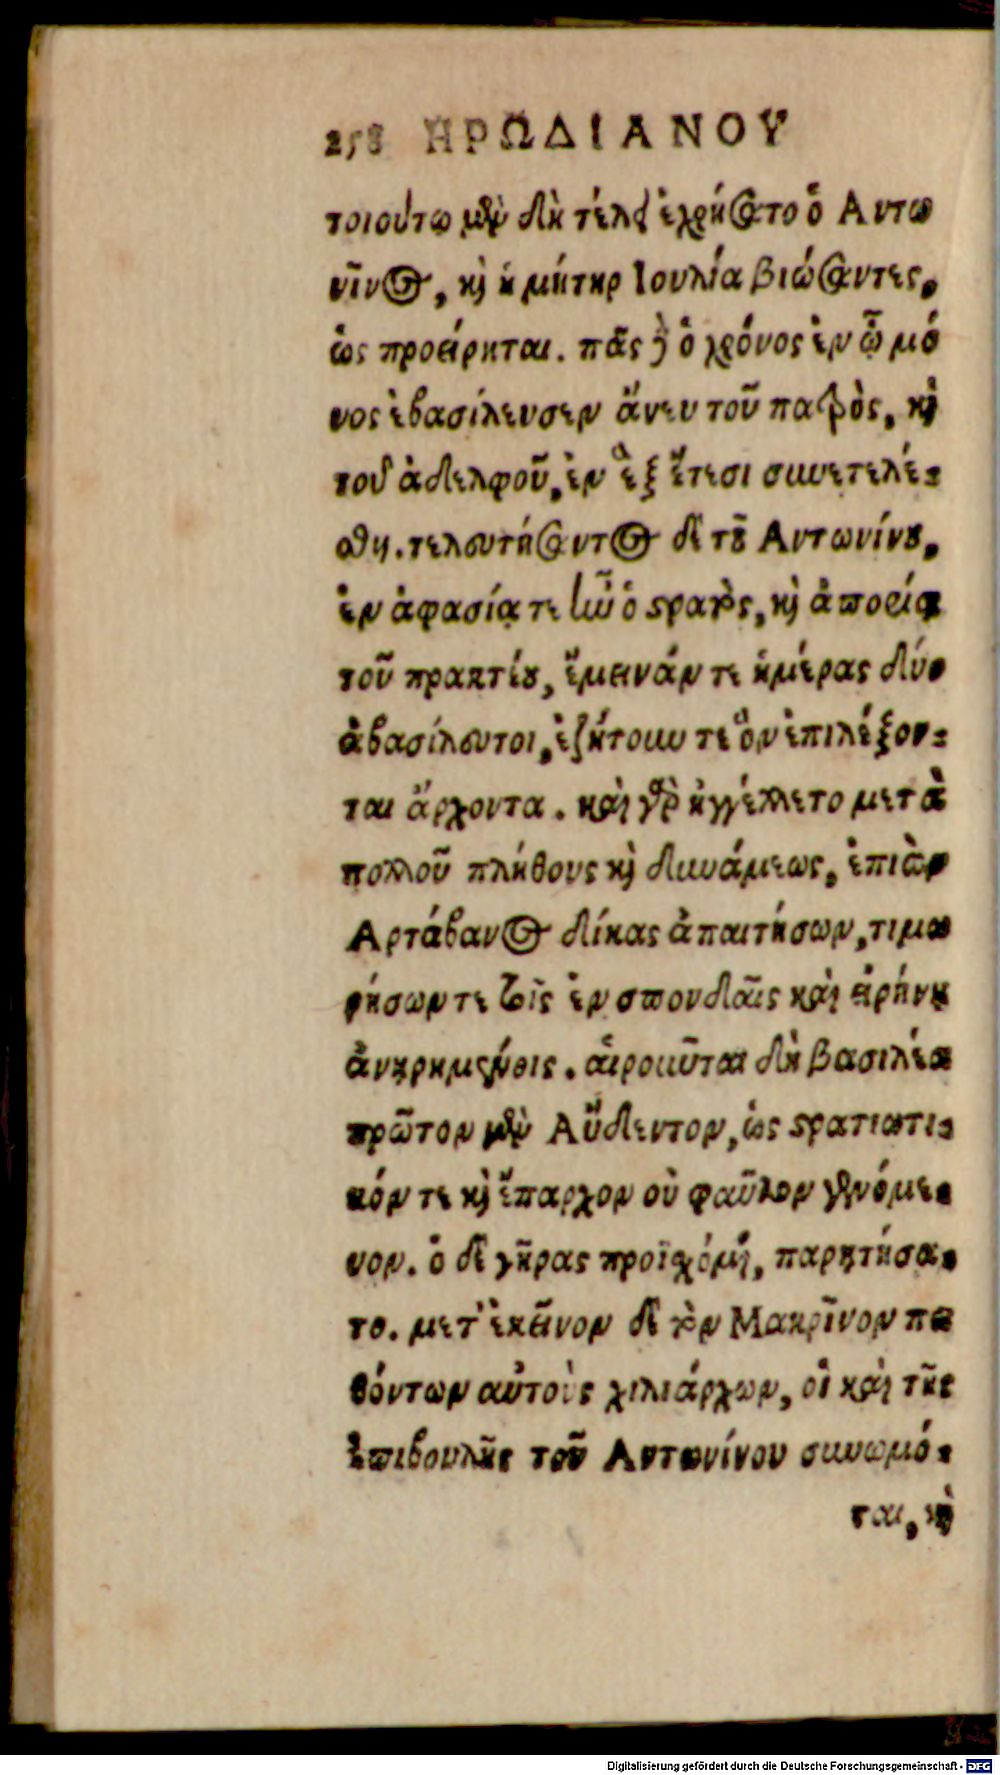 258 ΗΡΩΔΙΑΝΟΥ
τοιούτω μὲν δὴ τέλει ἐχρήσατο ὁ Αντω
νῖνος, κὶ ἡ μήτηρ Ιουλία βιώσαντες,
ὡς προείρηται. πᾶς δὲ ὁ χρόνος ἐν ᾧ μό
νος ἐβασίλευσεν ἄνευ τοῦ πατρὸς, κὶ
τοῦ ἀδελφοῦ, ἐν ἓξ ἔτεσι συνετελέ-
σθη. τελευτήσαντος δὲ τοῦ Αντωνίνου,
ἐν ἀφασίᾳ τε ἦν ὁ στρατὸς, κὶ ἀπορίᾳ
τοῦ πρακτέου, ἔμεινάν τε ἡμέρας δύο
ἀβασίλευτοι, ἐζήτουν τε ὃν ἐπιλέξον-
ται ἄρχοντα. καὶ γὰρ ἠγγέλλετο μετὰ
πολλοῦ πλήθους κὶ δυνάμεως, ἐπιὼν
Αρτάβανος δίκας ἀπαιτήσων, τιμω
ρήσων τε τοῖς ἐν σπονδαῖς καὶ εἰρήνῃ
ἀνῃρημένοις. αἱροῦνται δὴ βασιλέα
πρῶτον μὲν Αὔδεντον, ὡς στρατιωτι-
κόν τε κὶ ἔπαρχον οὐ φαῦλον γενόμε-
νον. ὁ δὲ γῆρας προϊσχόμενος, παρῃτήσα-
το. μετ' ἐκεῖνον δὲ τὸν Μακρῖνον πει
θόντων αὐτοὺς χιλιάρχων, οἳ καὶ τῆς
ἐπιβουλῆς τοῦ Αντωνίνου συνωμό-
ται, κὶ
Digitalisierung gefördert durch die Deutsche Forschungsgemeinschaft - DFG